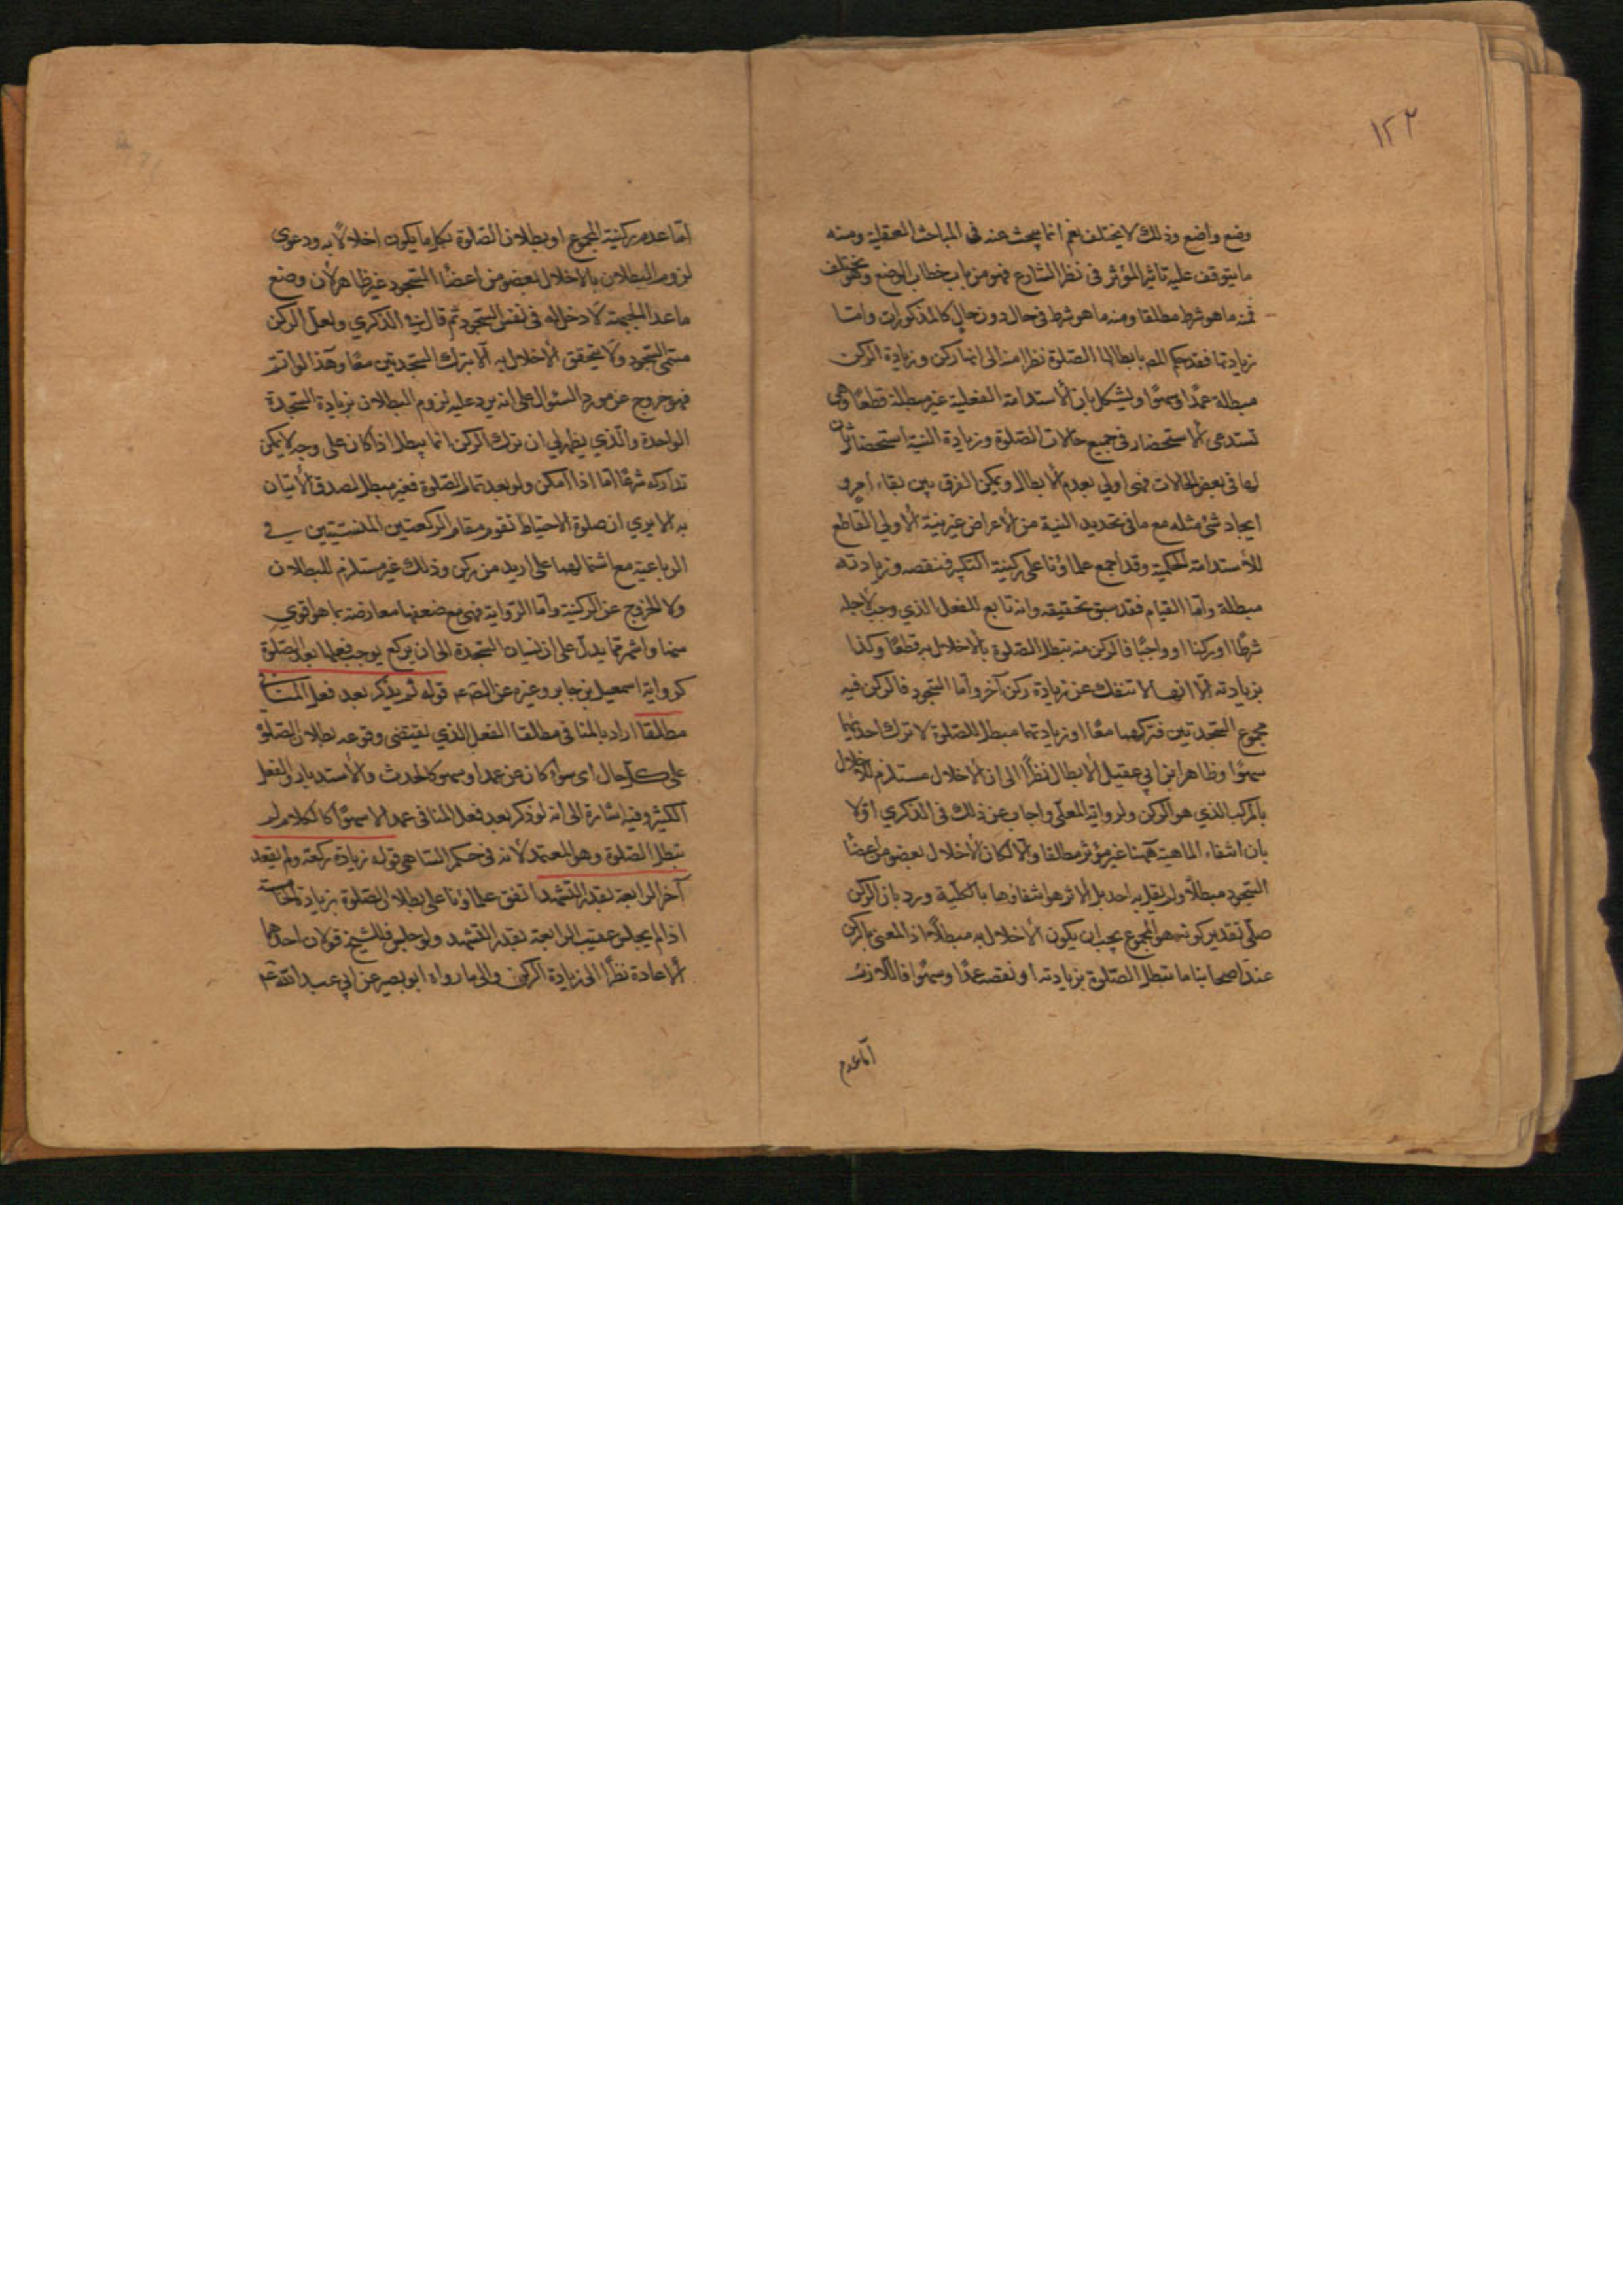 ١٢٢
وضع واضع وذلك لا يختلف نعم انما يبحث عنه فى المباحث العقلية ومنه
ما يتوقف عليه تاثير المؤثر فى نظر الشارع فهو من باب خطاب الوضع وهو يختلف
فمنه ما هو شرط مطلقا ومنه ما هو شرط فى حال دون حال كالمذكورات وامّا
زيادتها فقد حكم المصـ بابطالها الصّلوة نظرا منه الى انها ركن وزيادة الركن
مبطلة عمدًا وسهوًا ويشكل بان الأستدامة الفعلية غير مبطلة قطعًا وهى
تستدعى الاستحضار فى جميع حالات الصّلوة وزيادة النية استحضار ثان
لها فى بعض الحالات فهى اولى بعدم الابطال ويمكن الفرق بين بقاء امر و
ايجاد شئ مثله مع ما فى تجديد النية من الاعراض عن نية الاولى القاطع
للأستدامة الحكمية وقد اجمع علماؤنا على ركنية التكبير فنقصه وزيادته
مبطلة وامّا القيام فقد سبق تحقيقه وانه تابع للفعل الذي وجب لاجله
شرطًا او ركنا او واجبًا فالركن منه تبطل الصّلوة بالاخلال به قطعًا وكذا
بزيادته الّا انها لا تنفك عن زيادة ركن آخر وامّا السّجود فالركن فيه
مجموع السّجدتين فتركهما معًا او زيادتهما مبطل للصّلوة لا ترك احديهما
سهوًا وظاهر ابن ابي عقيل الابطال نظرًا الى ان الاخلال مستلزم للاخلال
بالمركب الذي هو الركن ولرواية المعلّى واجاب عن ذلك فى الذكرى اوّلا
بان انتفاء الماهية هٓهنا غير مؤثر مطلقا والّا لكان الأخلال بعضو من اعضاء
السّجود مبطلًا ولم يقل به احد بل المؤثر هو انتفاؤها بالكلّية ورد بان الركن
على تقدير كونه هو المجموع يجب ان يكون الأخلال به مبطلًا اذ المعنى بالركن
عند اصحابنا ما تبطل الصّلوة بزيادته او نقصه عمدًا وسهوًا فاللّازم
امّا عدم
امّا عدم ركنية المجموع او بطلان الصّلوة بكل ما يكون اخلالًا به ودعوى
لزوم البطلان بالاخلال بعضو من اعضاء السّجود غير ظاهر لأن وضع
ما عدا الجبهة لا دخل له فى نفس السّجود ثم قال فى الذكري ولعلّ الركن
مسمّى السّجود ولا يتحقق الأخلال به الّا بترك السّجدتين معًا وهذا لو اتم
فهو خروج عن مورد السئوال على انه يرد عليه لزوم البطلان بزيادة السّجدة
الواحدة والّذي يظهر لي ان ترك الركن انما يبطل اذا كان على وجه لا يمكن
تداركه شرعًا امّا اذا امكن ولو بعد تمام الصّلوة فغير مبطل لصدق الأتيان
به الا يري ان صلوة الاحتياط تقوم مقام الركعتين المنسيتين في
الرباعية مع اشتمالهما على ازيد من ركن وذلك غير مستلزم للبطلان
ولا للخروج عن الركنية وامّا الرّواية فهى مع ضعفها معارضة بما هو اقوي
منها واشهر مما يدلّ على ان نسيان السّجدة الى ان يركع يوجب فعلها بعد الصّلوة
كرواية اسمعيل بن جابر وغيره عن الصّـ عـ قوله لم يذكر بعد فعل المنافى
مطلقا اراد بالمنافى مطلقا الفعل الذي يقتضى وقوعه بطلان الصّلوة
على كل حال اى سواء كان عن عمد او سهو كالحدث والأستدبار والفعل
الكثير وفيه اشارة الى انه لو ذكر بعد فعل المنافى عمدا لا سهوًا كالكلام لم
تبطل الصّلوة وهو المعتمد لأنه فى حكم السّاهى قوله زيادة ركعة ولم يقعد
آخر الرابعة بقدر التشهد اتفق علماؤنا على بطلان الصّلوة بزيادة الخامسة
اذا لم يجلس عقيب الرابعة بقدر التشهد ولو جلس فللشيخ قولان احدهما
الاعادة نظرًا الى زيادة الركن والى ما رواه ابو بصير عن ابي عبد الله عـ